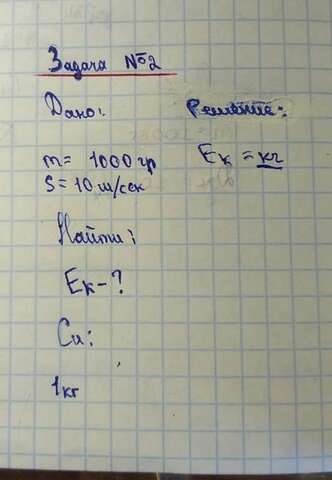 Задача №2
Дано:
Решение:
m = 1000 гр
Eк = кг
S = 10 м/сек
Найти:
Eк - ?
Си:
1кг